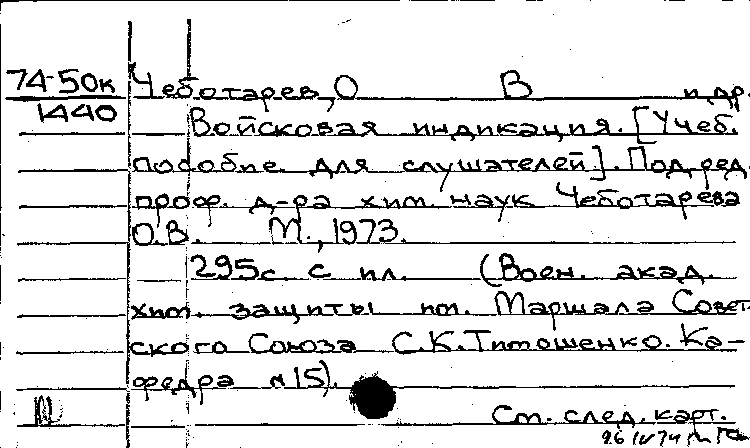 74-50к Чеботарев, О В и др.
1440
Войсковая индикация. [Учеб.
пособие для слушателей]. Под ред.
проф. д-ра хим. наук Чеботарева
О.В. М., 1973.
295с. с ил. (Воен. акад.
хим. защиты им. Маршала Совет-
ского Союза С.К.Тимошенко. Ка-
федра №15).
См. след. карт.
26 IV 74